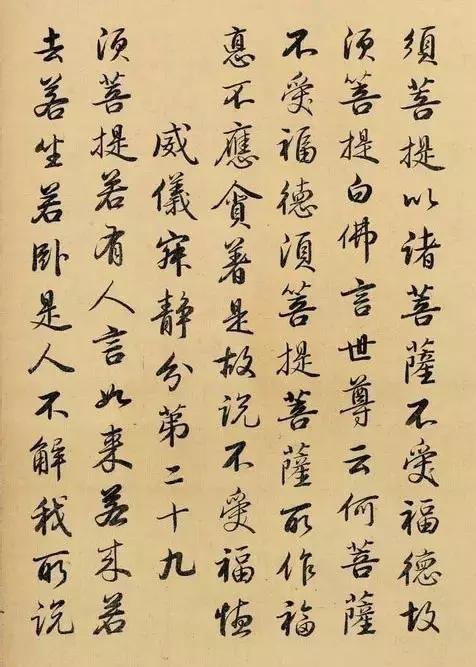 須菩提以諸菩薩不受福德故
須菩提白佛言世尊云何菩薩
不受福德須菩提菩薩所作福
悳不應貪著是故說不受福德
威儀寂靜分第二十九
須菩提若有人言如來若来若
去若坐若卧是人不解我所說